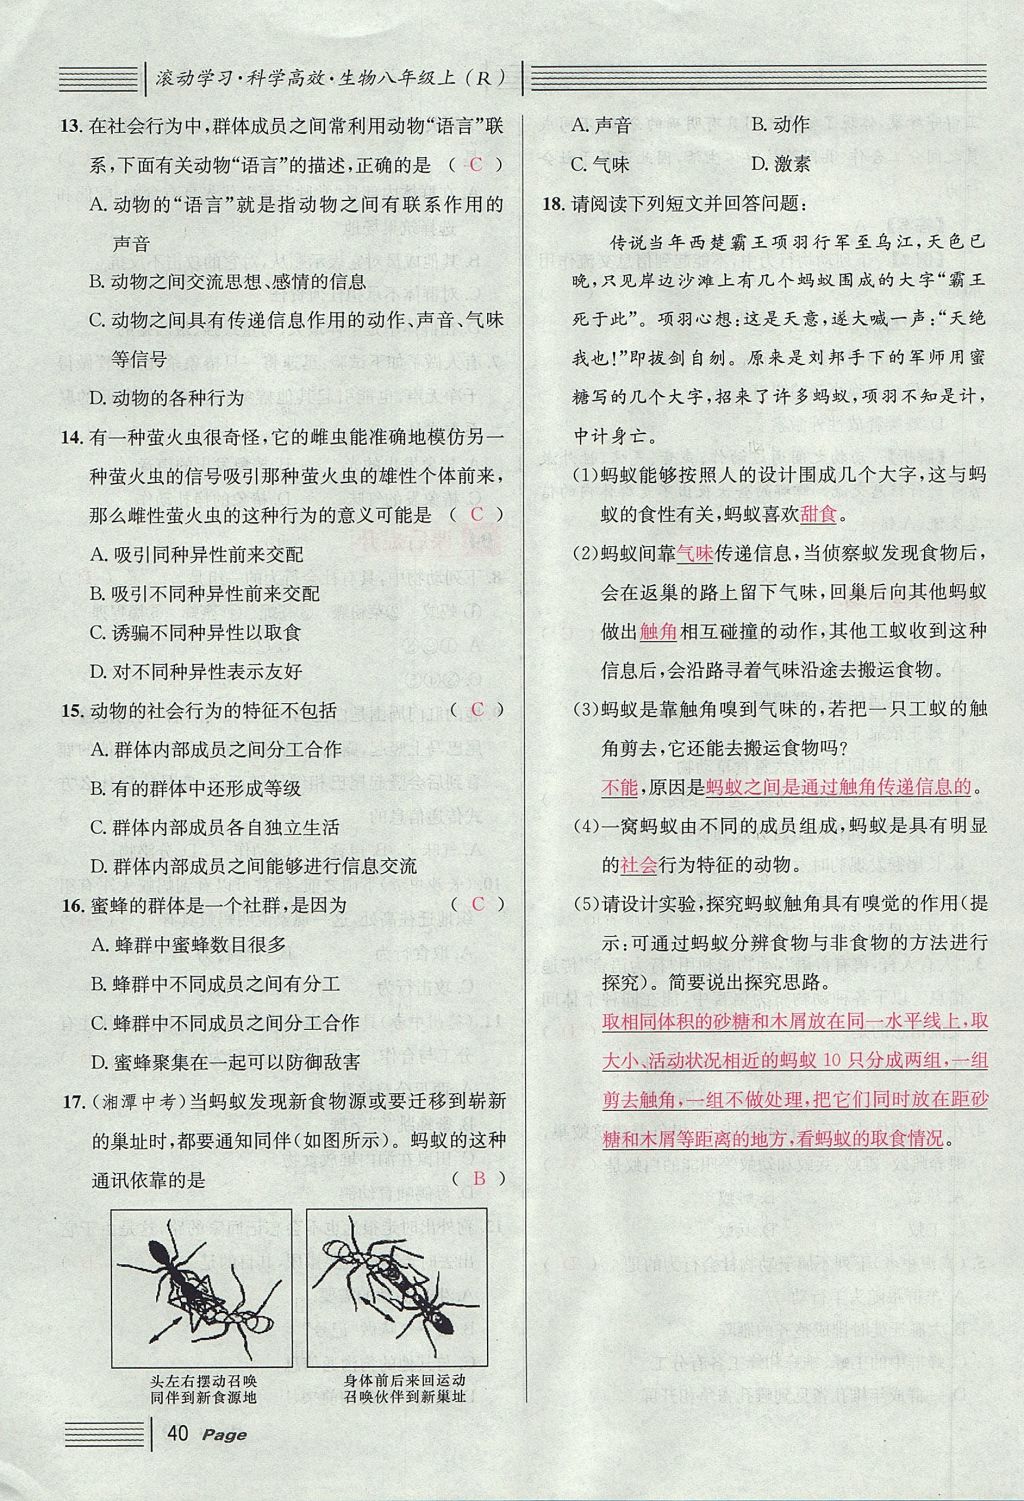 滚动学习·科学高效·生物八年级上(R)
13. 在社会行为中,群体成员之间常利用动物“语言”联
系,下面有关动物“语言”的描述,正确的是 ( C )
A. 动物的“语言”就是指动物之间有联系作用的
声音
B. 动物之间交流思想、感情的信息
C. 动物之间具有传递信息作用的动作、声音、气味
等信号
D. 动物的各种行为
14. 有一种萤火虫很奇怪,它的雌虫能准确地模仿另一
种萤火虫的信号吸引那种萤火虫的雄性个体前来,
那么雌性萤火虫的这种行为的意义可能是 ( C )
A. 吸引同种异性前来交配
B. 吸引不同种异性前来交配
C. 诱骗不同种异性以取食
D. 对不同种异性表示友好
15. 动物的社会行为的特征不包括 ( C )
A. 群体内部成员之间分工合作
B. 有的群体中还形成等级
C. 群体内部成员各自独立生活
D. 群体内部成员之间能够进行信息交流
16. 蜜蜂的群体是一个社群,是因为 ( C )
A. 蜂群中蜜蜂数目很多
B. 蜂群中不同成员之间有分工
C. 蜂群中不同成员之间分工合作
D. 蜜蜂聚集在一起可以防御敌害
17. (湘潭中考)当蚂蚁发现新食物源或要迁移到崭新
的巢址时,都要通知同伴(如图所示)。蚂蚁的这种
通讯依靠的是 ( B )
头左右摆动召唤
同伴到新食源地
身体前后来回运动
召唤伙伴到新巢址
A. 声音 B. 动作
C. 气味 D. 激素
18. 请阅读下列短文并回答问题:
传说当年西楚霸王项羽行军至乌江,天色已
晚,只见岸边沙滩上有几个蚂蚁围成的大字“霸王
死于此”。项羽心想:这是天意,遂大喊一声:“天绝
我也!”即拔剑自刎。原来是刘邦手下的军师用蜜
糖写的几个大字,招来了许多蚂蚁,项羽不知是计,
中计身亡。
(1)蚂蚁能够按照人的设计围成几个大字,这与蚂
蚁的食性有关,蚂蚁喜欢甜食。
(2)蚂蚁间靠气味传递信息,当侦察蚁发现食物后,
会在返巢的路上留下气味,回巢后向其他蚂蚁
做出触角相互碰撞的动作,其他工蚁收到这种
信息后,会沿路寻着气味沿途去搬运食物。
(3)蚂蚁是靠触角嗅到气味的,若把一只工蚁的触
角剪去,它还能去搬运食物吗?
不能,原因是蚂蚁之间是通过触角传递信息的。
(4)一窝蚂蚁由不同的成员组成,蚂蚁是具有明显
的社会行为特征的动物。
(5)请设计实验,探究蚂蚁触角具有嗅觉的作用(提
示:可通过蚂蚁分辨食物与非食物的方法进行
探究)。简要说出探究思路。
取相同体积的砂糖和木屑放在同一水平线上,取
大小、活动状况相近的蚂蚁 10 只分成两组,一组
剪去触角,一组不做处理,把它们同时放在距砂
糖和木屑等距离的地方,看蚂蚁的取食情况。
40 Page